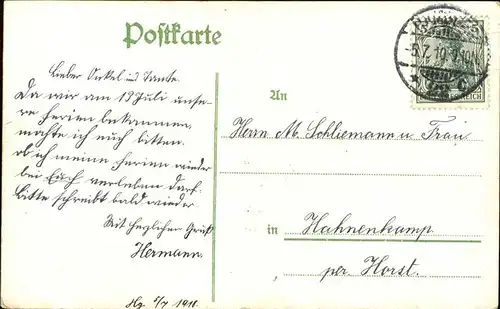 Postkarte
Lieber Onkel und Tante.
Da wir am 13 Juli unse-
re Ferien bekommen,
möchte ich euch bitten,
ob ich meine Ferien wieder
bei Euch verleben darf.
Bitte schreibt bald wieder.
Mit herzlichem Gruß
Hermann.
Hg. 5/7 1910.
An
Herrn M. Schliemann u. Frau
in Hahnenkamp
per Horst.
5.7.10
REICH